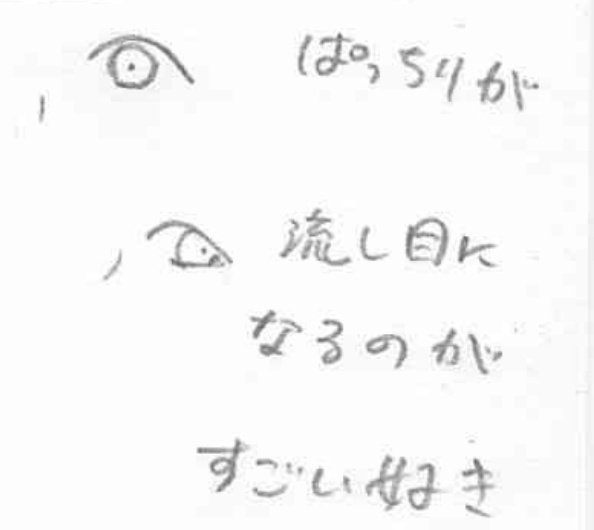 ぱっちりが
流し目に
なるのが
すごい好き